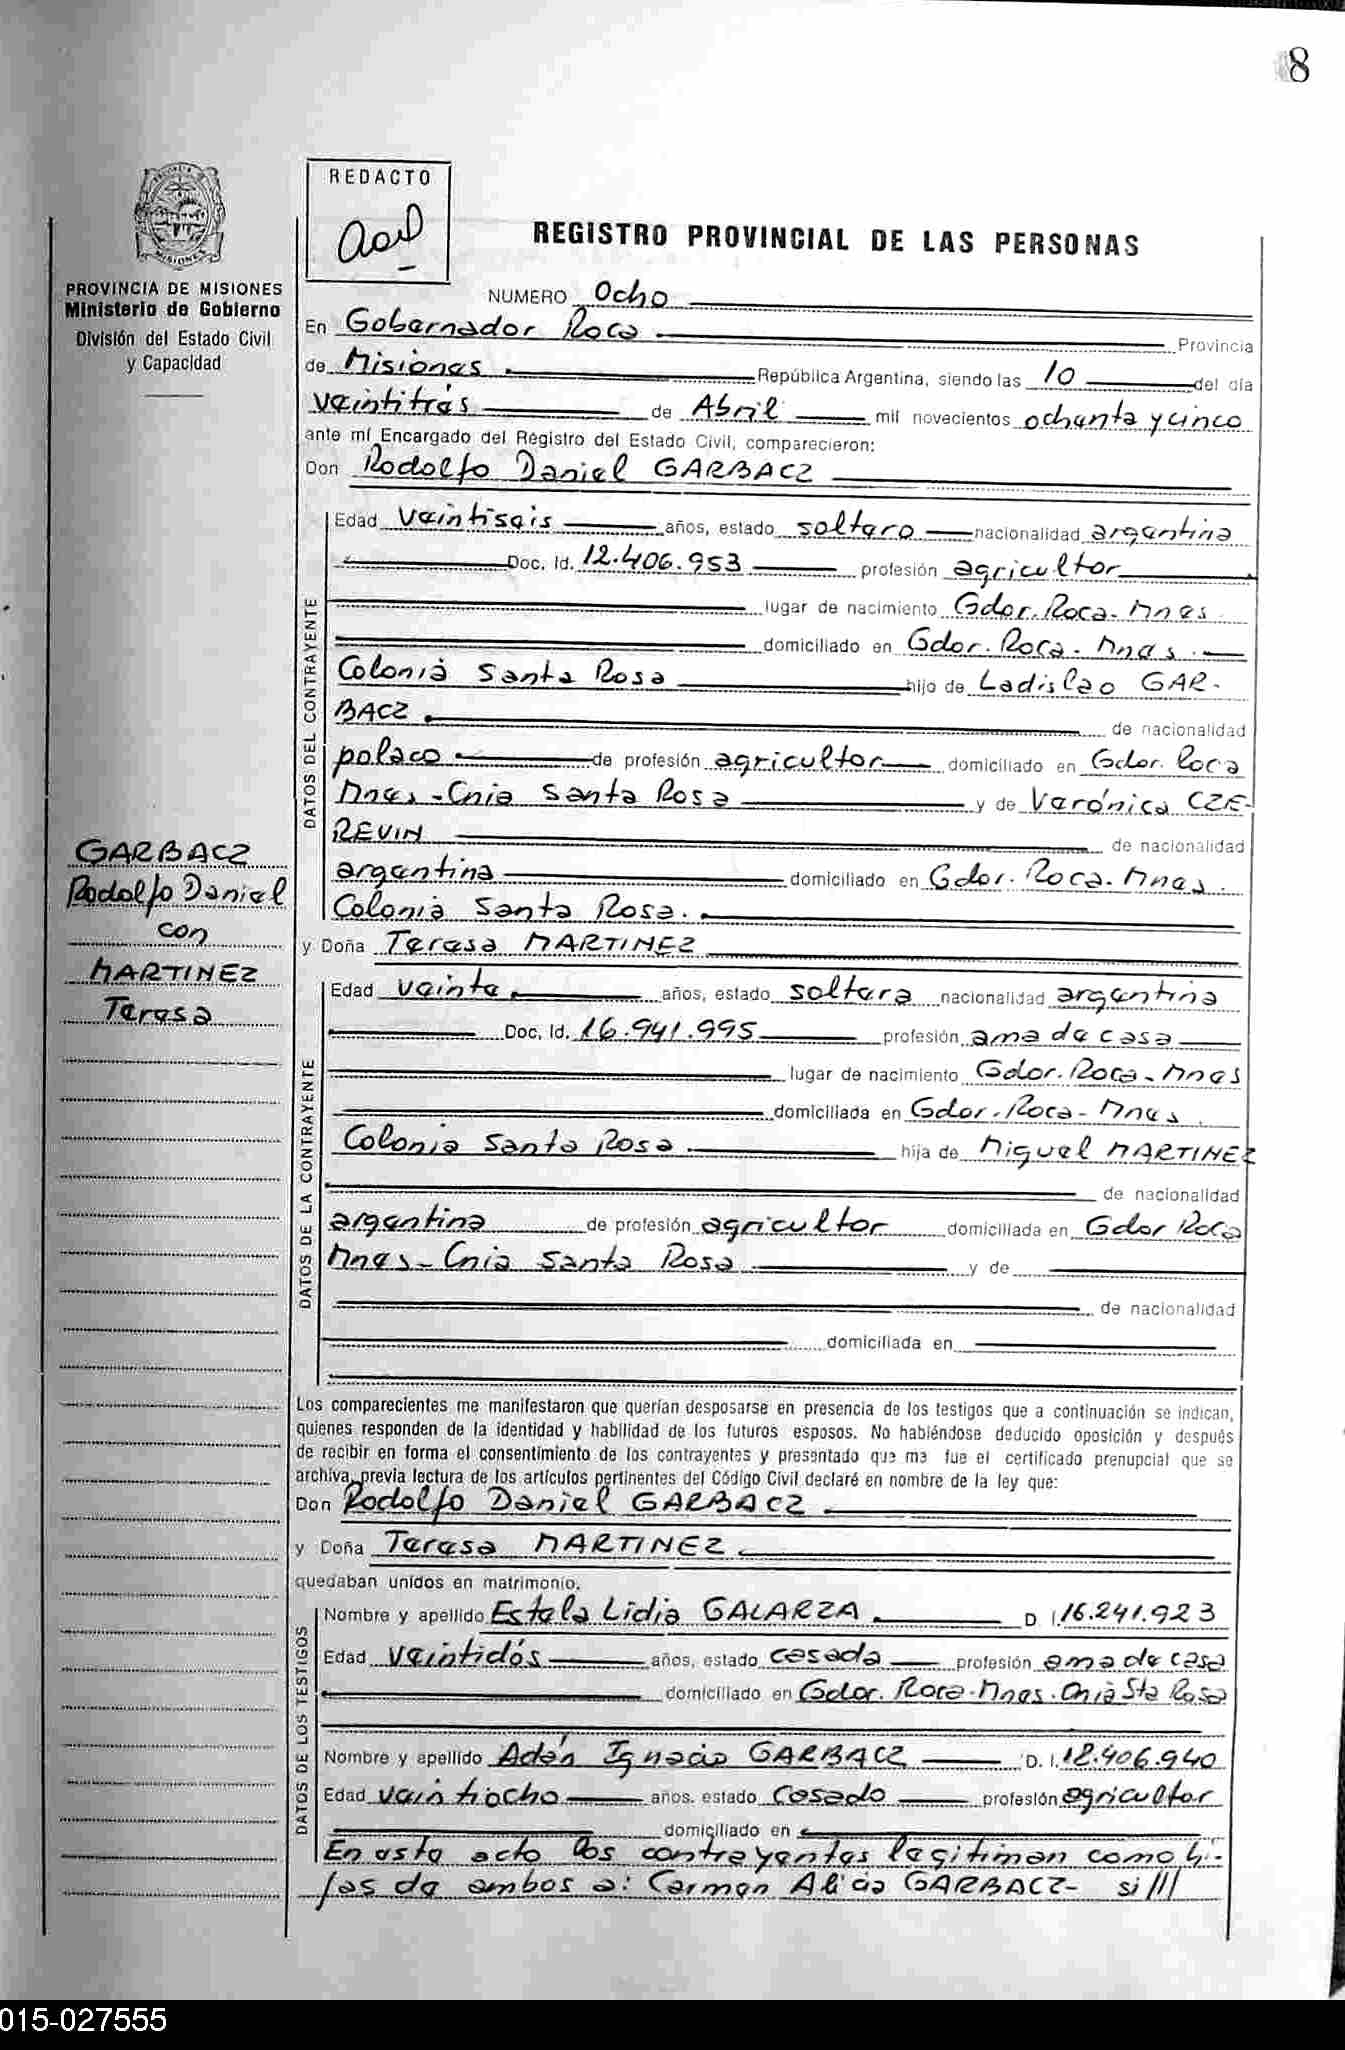 8
REDACTO
REGISTRO PROVINCIAL DE LAS PERSONAS
PROVINCIA DE MISIONES
Ministerio de Gobierno
División del Estado Civil
y Capacidad
MISIONES
NUMERO Ocho
En Gobernador Roca Provincia
de Misiones República Argentina, siendo las 10 del día
veintitrés de Abril mil novecientos ochenta y cinco
ante mí Encargado del Registro del Estado Civil, comparecieron:
Don Rodolfo Daniel GARBACZ
DATOS DEL CONTRAYENTE
Edad veintiseis años, estado soltero nacionalidad argentina
Doc. Id. 12.406.953 profesión agricultor
lugar de nacimiento Gdor. Roca - Mnes
domiciliado en Gdor. Roca - Mnes.
Colonia Santa Rosa hijo de Ladislao GAR-
BACZ de nacionalidad
polaco de profesión agricultor domiciliado en Gdor. Roca
Mnes - Cnia Santa Rosa y de Verónica CZE-
REVIN de nacionalidad
argentina domiciliado en Gdor. Roca. Mnes.
Colonia Santa Rosa.
GARBACZ
Rodolfo Daniel
con
MARTINEZ
Teresa
y Doña Teresa MARTINEZ
DATOS DE LA CONTRAYENTE
Edad veinte años, estado soltera nacionalidad argentina
Doc. Id. 16.941.995 profesión ama de casa
lugar de nacimiento Gdor. Roca - Mnes
domiciliada en Gdor. Roca - Mnes.
Colonia Santa Rosa hija de Miguel MARTINEZ
de nacionalidad
argentina de profesión agricultor domiciliada en Gdor Roca
Mnes - Cnia Santa Rosa y de
de nacionalidad
domiciliada en
Los comparecientes me manifestaron que querían desposarse en presencia de los testigos que a continuación se indican,
quienes responden de la identidad y habilidad de los futuros esposos. No habiéndose deducido oposición y después
de recibir en forma el consentimiento de los contrayentes y presentado que me fue el certificado prenupcial que se
archiva previa lectura de los artículos pertinentes del Código Civil declaré en nombre de la ley que:
Don Rodolfo Daniel GARBACZ
y Doña Teresa MARTINEZ
quedaban unidos en matrimonio.
DATOS DE LOS TESTIGOS
Nombre y apellido Estela Lidia GALARZA D. I. 16.241.923
Edad veintidós años, estado casada profesión ama de casa
domiciliado en Gdor. Roca - Mnes. Cnia Sta Rosa
Nombre y apellido Adán Ignacio GARBACZ D. I. 12.406.940
Edad veintiocho años. estado casado profesión agricultor
domiciliado en
En este acto los contrayentes legitiman como hi-
jas de ambos a: Carmen Alicia GARBACZ- si///
015-027555